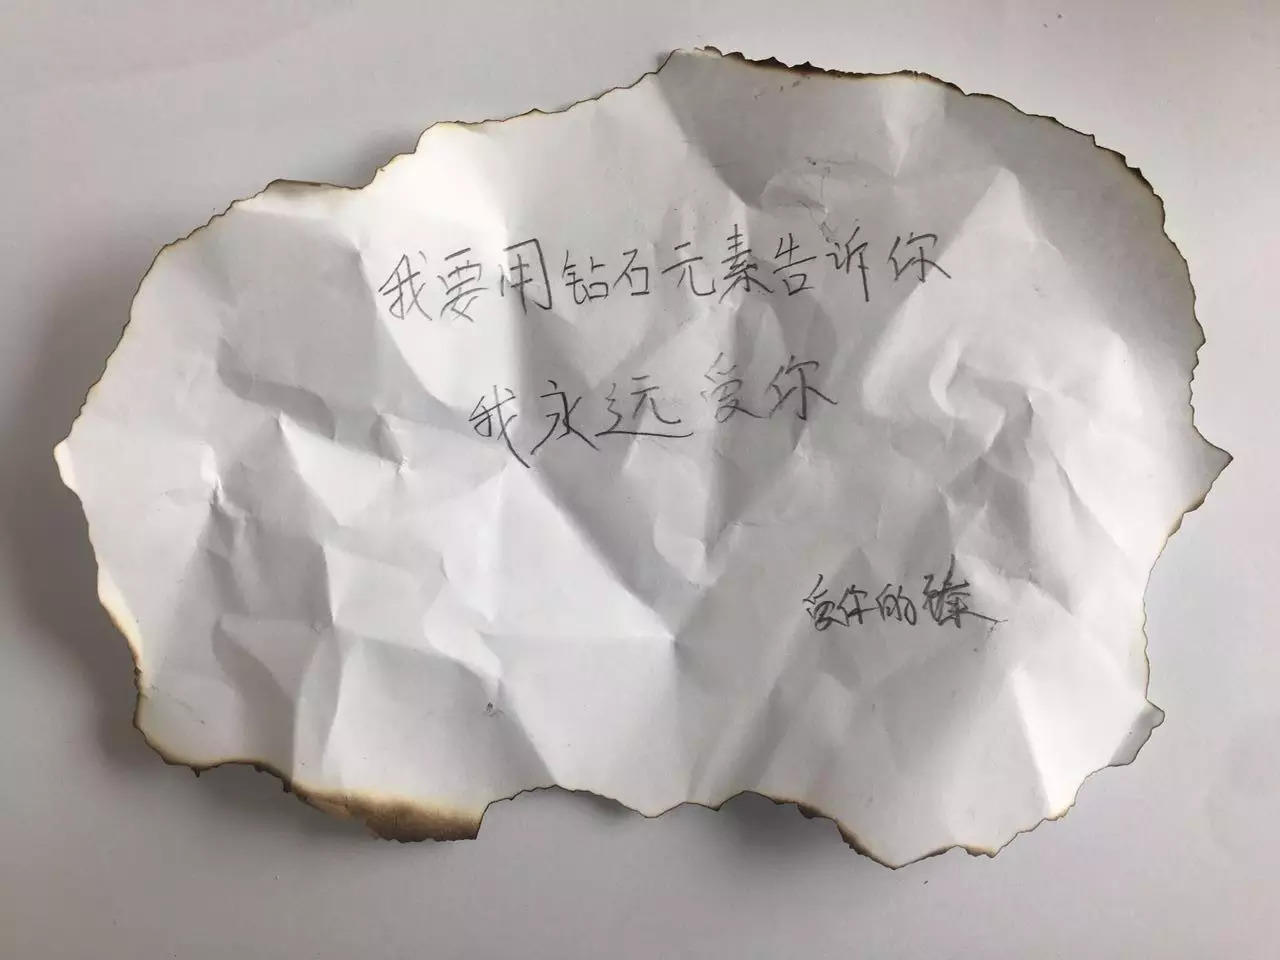 我要用钻石元素告诉你
我永远爱你
爱你的